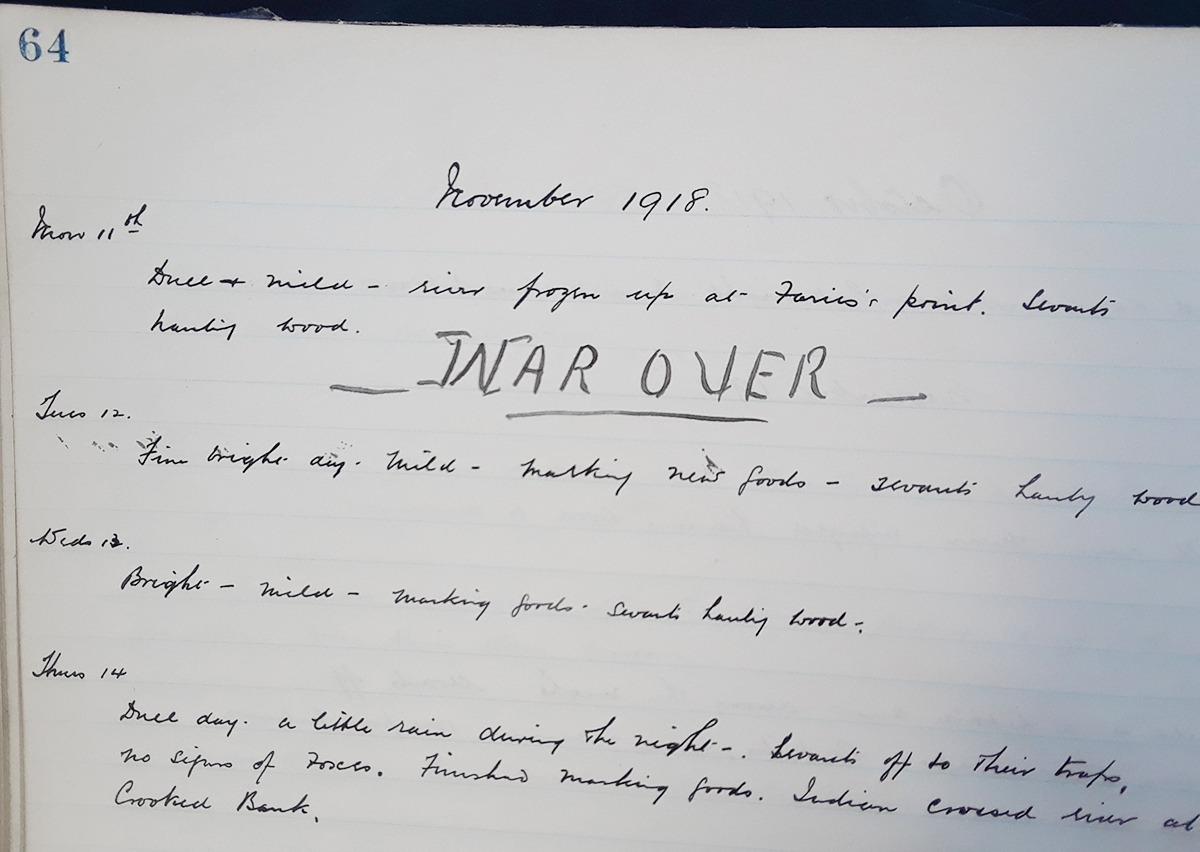 64
November 1918.
Mon 11th
Dull + mild - river frozen up at Faries's point. Servants
hauling wood.
— WAR OVER —
Tues 12.
Fine bright day. Mild - marking new goods - servants hauling wood
Weds 13.
Bright - mild - marking goods - servants hauling wood -.
Thurs 14
Dull day. a little rain during the night -. Servants off to their traps,
no signs of Foxes. Finished marking goods. Indian crossed river at
Crooked Bank.